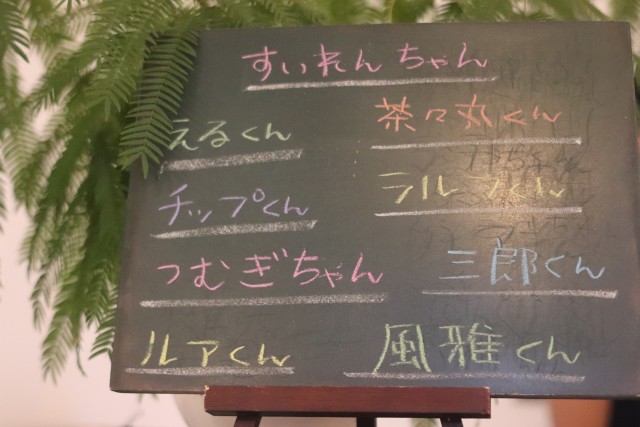 すいれんちゃん
えるくん
茶々丸くん
チップくん
ラルフくん
つむぎちゃん
三郎くん
ルアくん
風雅くん